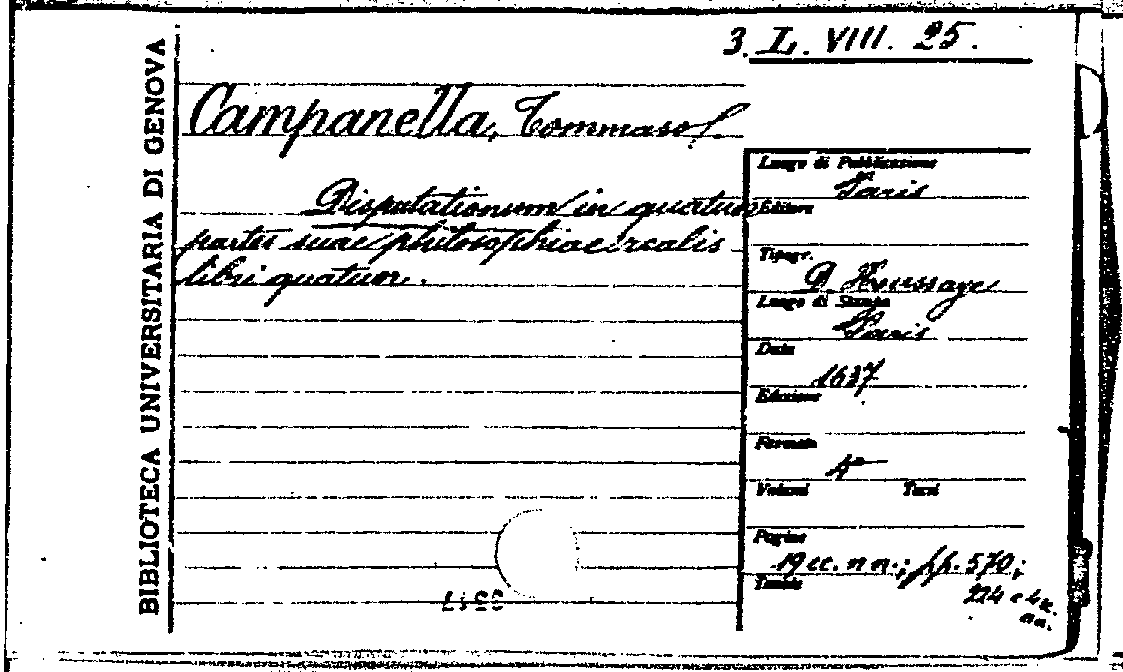 3. L. VIII. 25.
BIBLIOTECA UNIVERSITARIA DI GENOVA
Campanella, Tommaso
Disputationum in quatuor
partes suae philosophiae realis
libri quatuor.
Luogo di Pubblicazione
Paris
Editore
Tipogr.
D. Houssaye
Luogo di Stampa
Paris
Data
1637
Edizione
Formato
4°
Volumi Tomi
Pagine
19 cc. nn.; pp. 570;
224 e 4 c.
nn.
Tavole